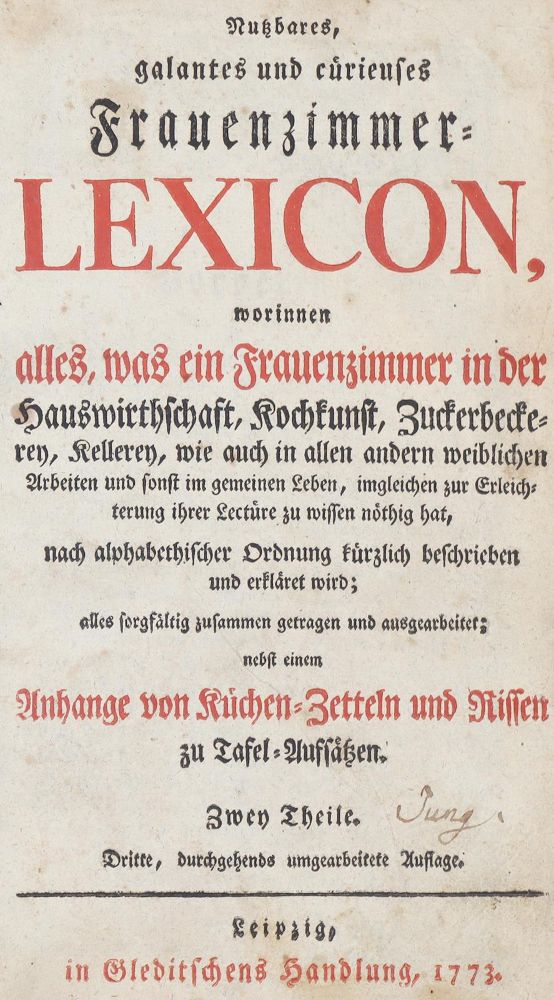 Nutzbares,
galantes und cürieuses
Frauenzimmer-
LEXICON,
worinnen
alles, was ein Frauenzimmer in der
Hauswirthschaft, Kochkunst, Zuckerbecke-
rey, Kellerey, wie auch in allen andern weiblichen
Arbeiten und sonst im gemeinen Leben, imgleichen zur Erleich-
terung ihrer Lectüre zu wissen nöthig hat,
nach alphabethischer Ordnung kürzlich beschrieben
und erkläret wird;
alles sorgfältig zusammen getragen und ausgearbeitet;
nebst einem
Anhange von Küchen-Zetteln und Rissen
zu Tafel-Aufsätzen.
Zwey Theile.
Jung.
Dritte, durchgehends umgearbeitete Auflage.
Leipzig,
in Gleditschens Handlung, 1773.